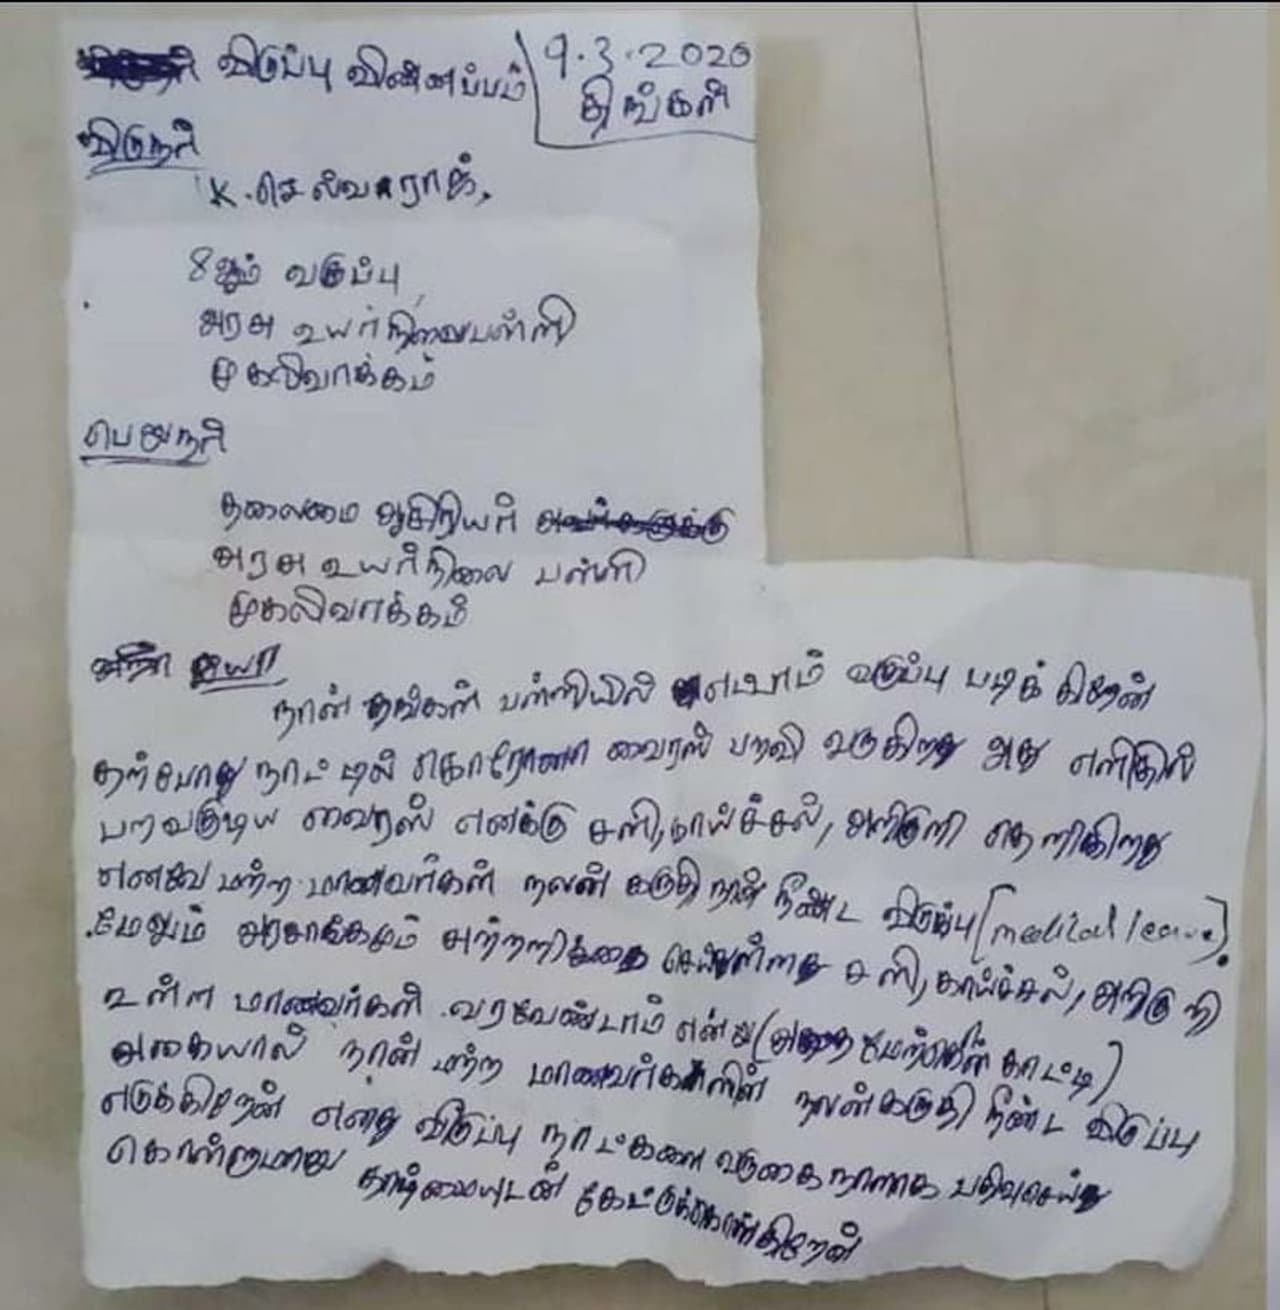 விடுப்பு விண்ணப்பம்
9.3.2020
திங்கள்
விடுநர்
K.செல்வராஜ்,
8ஆம் வகுப்பு
அரசு உயர்நிலைபள்ளி
முகலிவாக்கம்
பெறுநர்
தலைமை ஆசிரியர்
அரசு உயர்நிலை பள்ளி
முகலிவாக்கம்
அய்யா
நான் தங்கள் பள்ளியில் எட்டாம் வகுப்பு படிக்கிறேன்
தற்போது நாட்டில் கொரோனா வைரஸ் பறவி வருகிறது அது எளிதில்
பறவகுடிய வைரஸ் எனக்கு சளி,காய்ச்சல், அறிகுறி தெறிகிறது
எனவே மற்ற மாணவர்கள் நலன் கருதி நான் நீண்ட விடுப்பு [medical leave].
மேலும் அரசாங்கமும் அற்றறிக்தை செய்துள்ளது சளி,காய்ச்சல், அறிகுறி
உள்ள மாணவர்கள் வரவேண்டாம் என்று (அதை மேற்கோள் காட்டி)
அகையால் நான் மற்ற மாணவர்களின் நலன்கருதி நீண்ட விடுப்பு
எடுக்கிறேன் எனது விடுப்பு நாட்களை வருகைநாளாக பதிவுசெய்து
கொள்ளுமாறு தாழ்மையுடன் கேட்டுக்கொள்கிறேன்